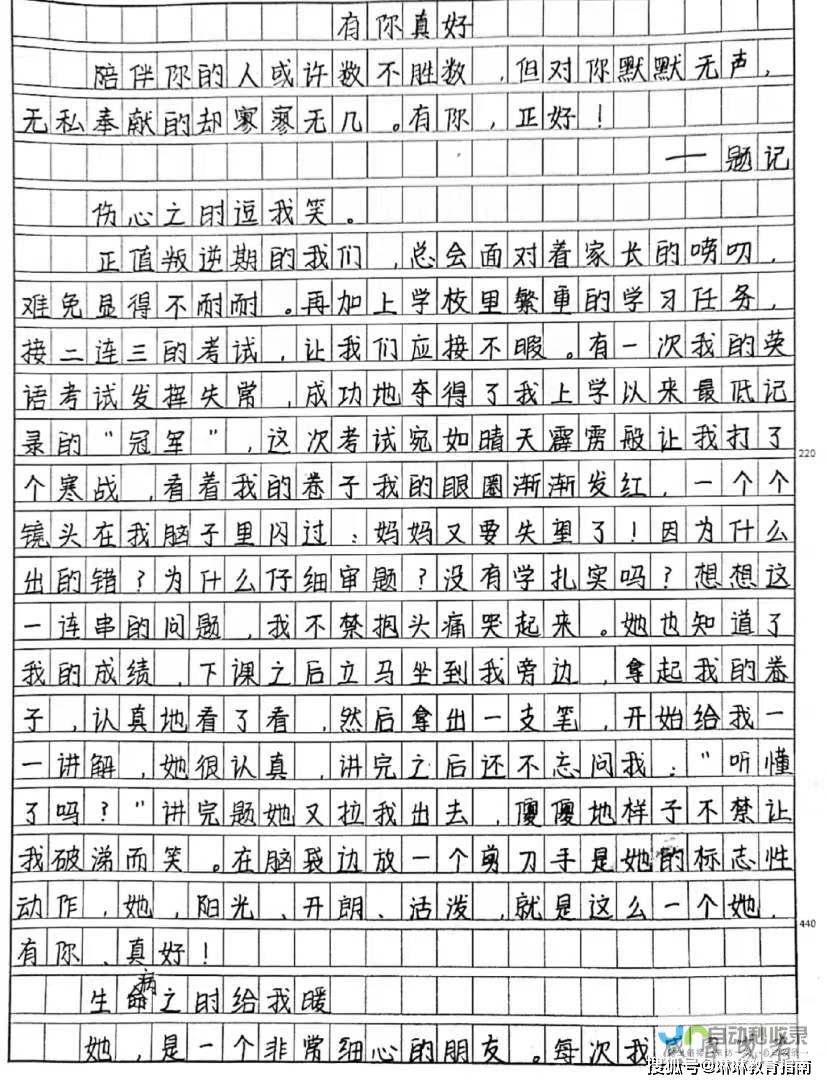 有你真好
陪伴你的人或许数不胜数，但对你默默无声，
无私奉献的却寥寥无几。有你，正好！
——题记
伤心之时逗我笑。
正值叛逆期的我们，总会面对着家长的唠叨，
难免显得不耐耐。再加上学校里繁重的学习任务，
接二连三的考试，让我们应接不暇。有一次我的英
语考试发挥失常，成功地夺得了我上学以来最低记
录的"冠军"，这次考试宛如晴天霹雳般让我打了
220
个寒战，看着我的卷子我的眼圈渐渐发红，一个个
镜头在我脑子里闪过：妈妈又要失望了！因为什么
出的错？为什么仔细审题？没有学扎实吗？想想这
一连串的问题，我不禁抱头痛哭起来。她也知道了
我的成绩，下课之后立马坐到我旁边，拿起我的卷
子，认真地看了看，然后拿出一支笔，开始给我一
一讲解，她很认真，讲完之后还不忘问我："听懂
了吗？"讲完题她又拉我出去，傻傻地样子不禁让
我破涕而笑。在脑袋边放一个剪刀手是她的标志性
动作，她，阳光、开朗、活泼，就是这么一个她，
440
有你、真好！
生病之时给我暖
她，是一个非常细心的朋友。每次我
自动秒收录
搜狐号@琳琳教育指南